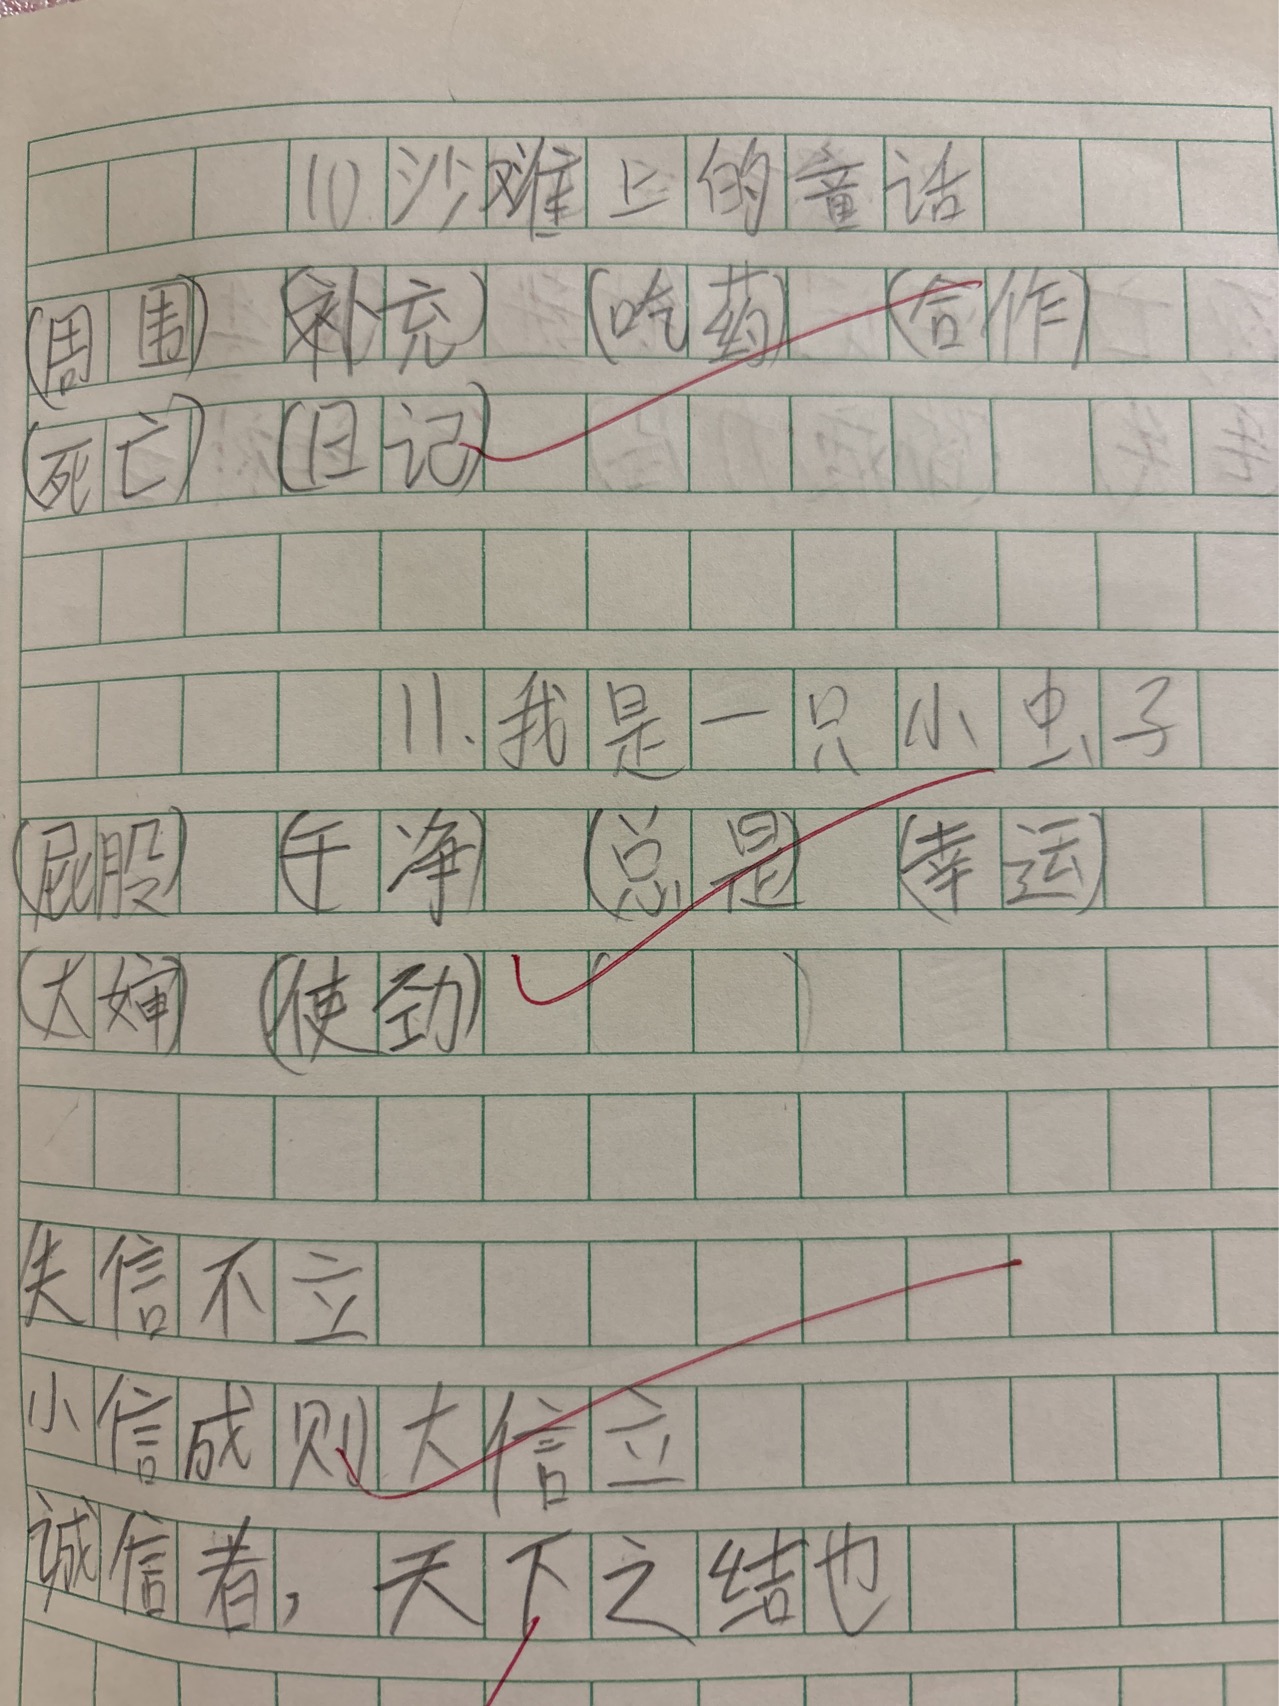 10.沙难上的童话
(周围) (补充) (吃药) (合作)
(死亡) (日记)
11.我是一只小虫子
(屁股) (干净) (总是) (幸运)
(大婶) (使劲) ( )
失信不立
小信成则大信立
诚信者,天下之结也